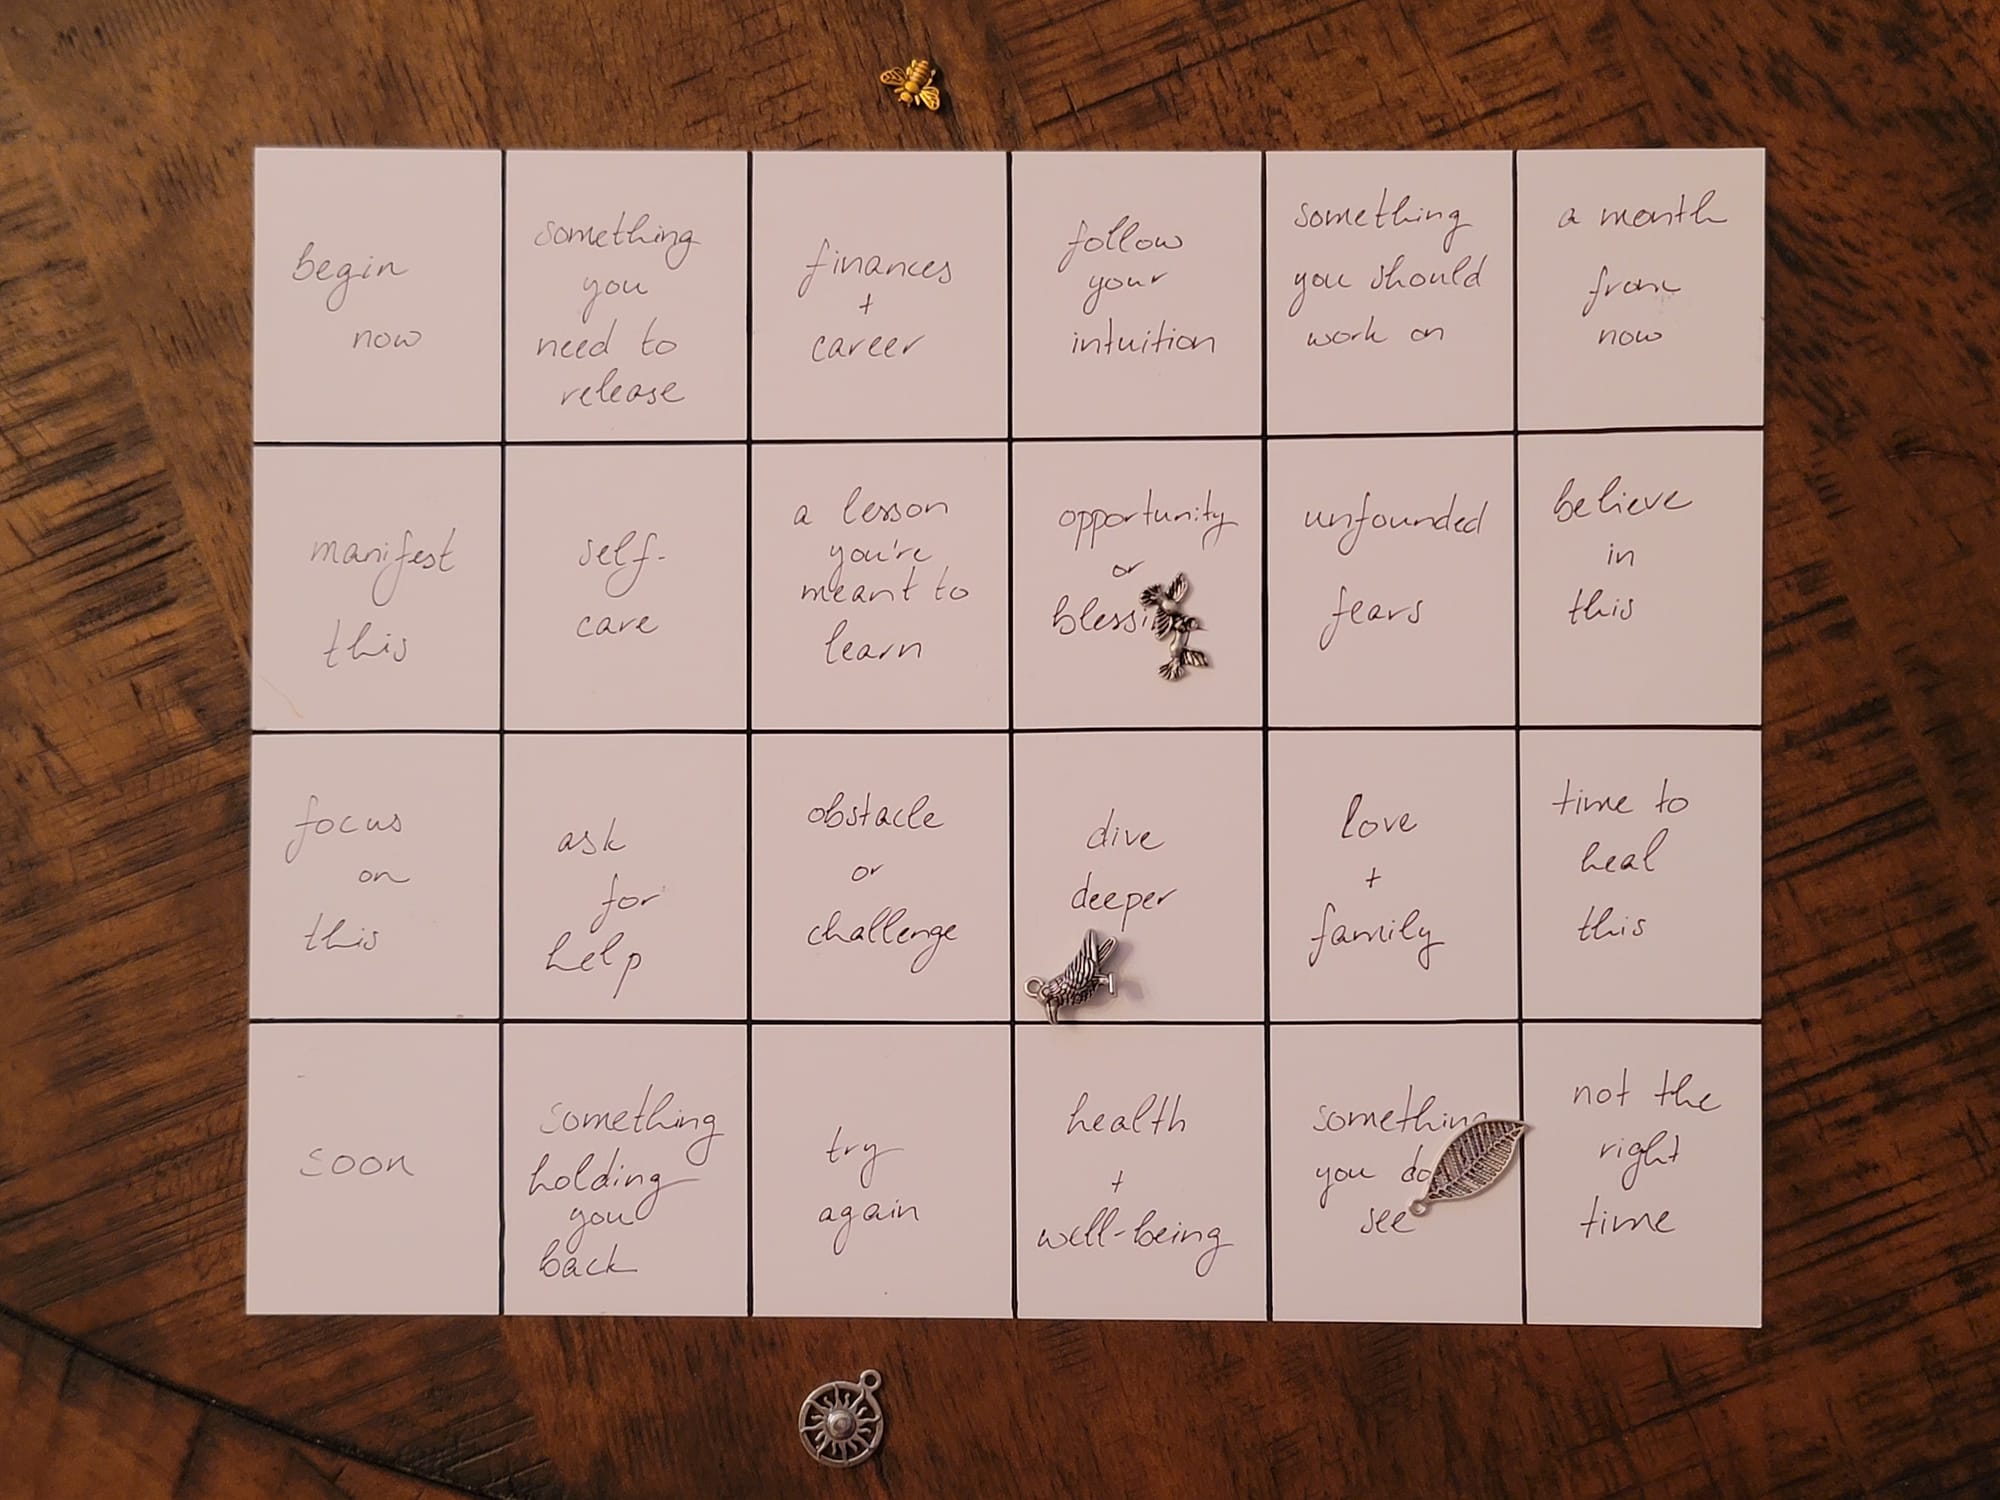 begin
now
something
you
need to
release
finances
+
career
follow
your
intuition
something
you should
work on
a month
from
now
manifest
this
self-
care
a lesson
you're
meant to
learn
opportunity
or
unfounded
fears
believe
in
this
focus
on
this
ask
for
help
obstacle
or
challenge
dive
deeper
love
+
family
time to
heal
this
soon
something
holding
you
back
try
again
health
+
well-being
something
you
see
not the
right
time